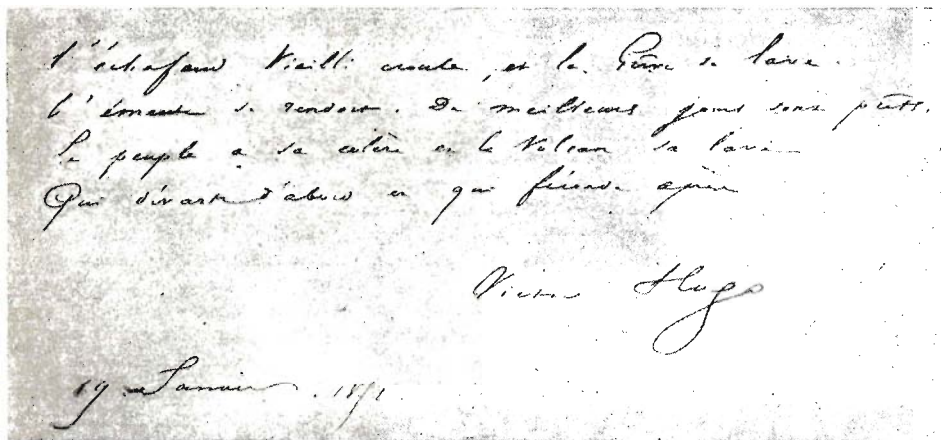 L'échafaud vieilli croule, et la Grève se lave.
L'émeute se rendort. De meilleurs jours sont prêts.
Le peuple a sa colère et le Volcan sa lave
Qui dévaste d'abord et qui féconde après
Victor Hugo
19 Janvier. 1851